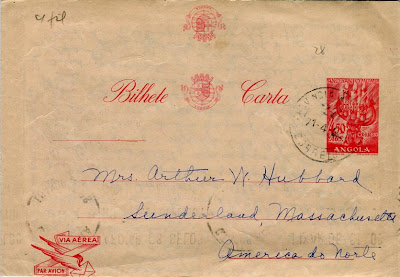 28
Bilhete Carta
50
ANGOLA
Mrs. Arthur N Hubbard
Sunderland, Massachusetts
America do Norte
VIA AÉREA
PAR AVION